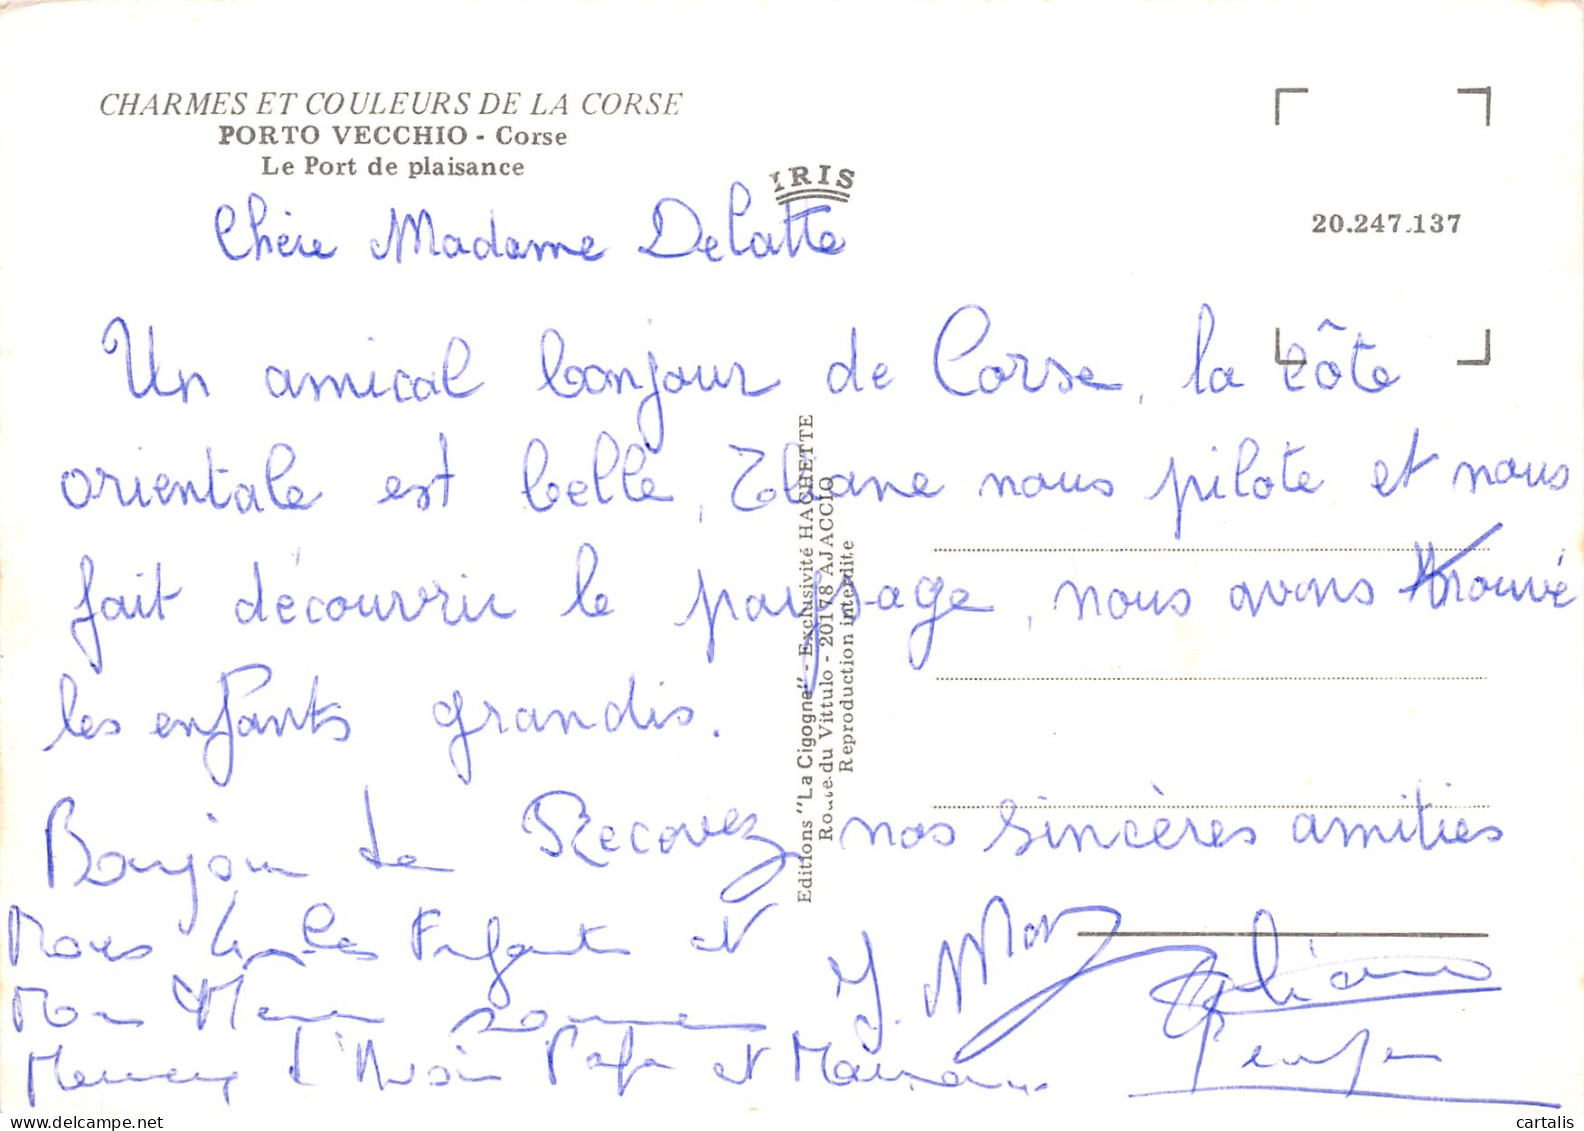 CHARMES ET COULEURS DE LA CORSE
PORTO VECCHIO - Corse
Le Port de plaisance
IRIS
20.247.137
Chère Madame Delatte
Un amical bonjour de Corse, la côte
orientale est belle, nous pilote et nous
fait découvrir le paysage, nous avons trouvé
les enfants grandis.
Bonjour de nos sincères amitiés
les Enfants et
Mon sommes
Papa et Maman
J.
Editions "La Cigogne" - Exclusivité HACHETTE
Route du Vittulo - 20178 AJACCIO
Reproduction interdite
cartalis
www.delcampe.net